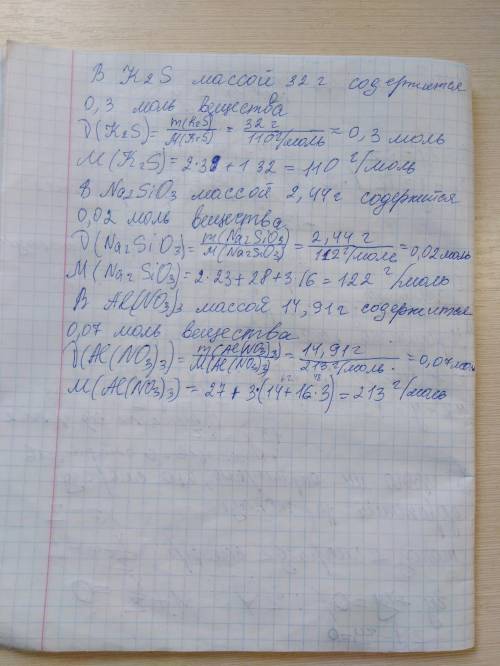 В K2S массой 32 г содержится
0,3 моль вещества
ν(K2S)= m(K2S)/M(K2S) = 32 г/110 г/моль = 0,3 моль
M(K2S)= 2·39+1·32 = 110 г/моль
В Na2SiO3 массой 2,44г содержится
0,02 моль вещества
ν(Na2SiO3)= m(Na2SiO3)/M(Na2SiO3) = 2,44 г/122 г/моль =0,02моль
M(Na2SiO3)= 2·23+28+3·16=122 г/моль
В Al(NO3)3 массой 14,91г содержится
0,07 моль вещества
ν(Al(NO3)3)= m(Al(NO3)3)/M(Al(NO3)3) = 14,91г/213 г/моль. =0,07моль
M(Al(NO3)3) = 27+3·(14+16·3)=213 г/моль